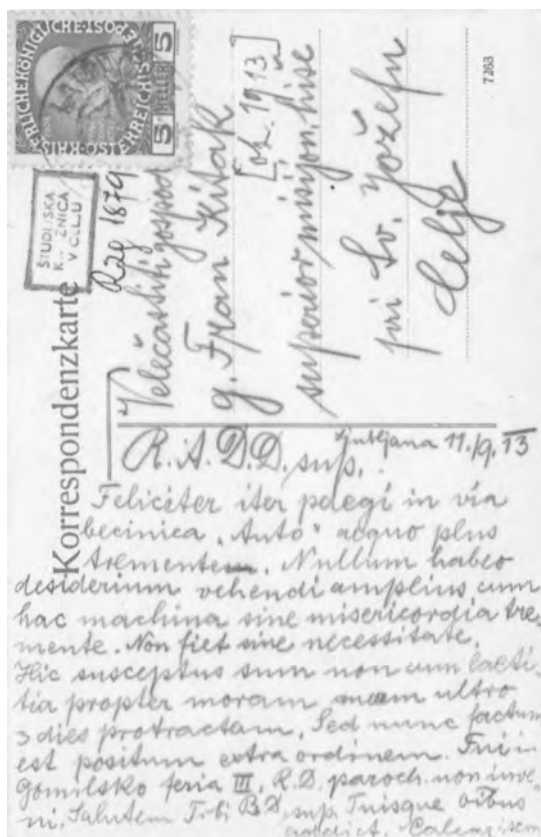 KAISERLICHE KÖNIGLICHE
ÖSTERREICHISCHE POST
5 HELLER 5
ŠTUDIJSKA
KNJIŽNICA
V CELJU
Korrespondenzkarte
Raz 1879
Velečastiti gospod
g. Fran Kitak
[ok. 1913]
superior misijon. hiše
pri Sv. Jožefu
Celje
7263
Ljubljana 11./9. 13
R. A. D. D. sup.
Feliciter iter peregi in via
"Auto" aequo plus
tremente. Nullum habeo
desiderium vehendi amplius cum
hac machina sine misericordia tre-
mente. Non fiet sine necessitate.
Hic susceptus sum non cum laeti-
tia propter moram meam ultro
3 dies protractam. Sed nunc factum
est positum extra ordinem. Fui in
Gomilsko feria III, R.D. paroch. non inve-
ni. Salutem Tibi B.D. sup. Tuisque